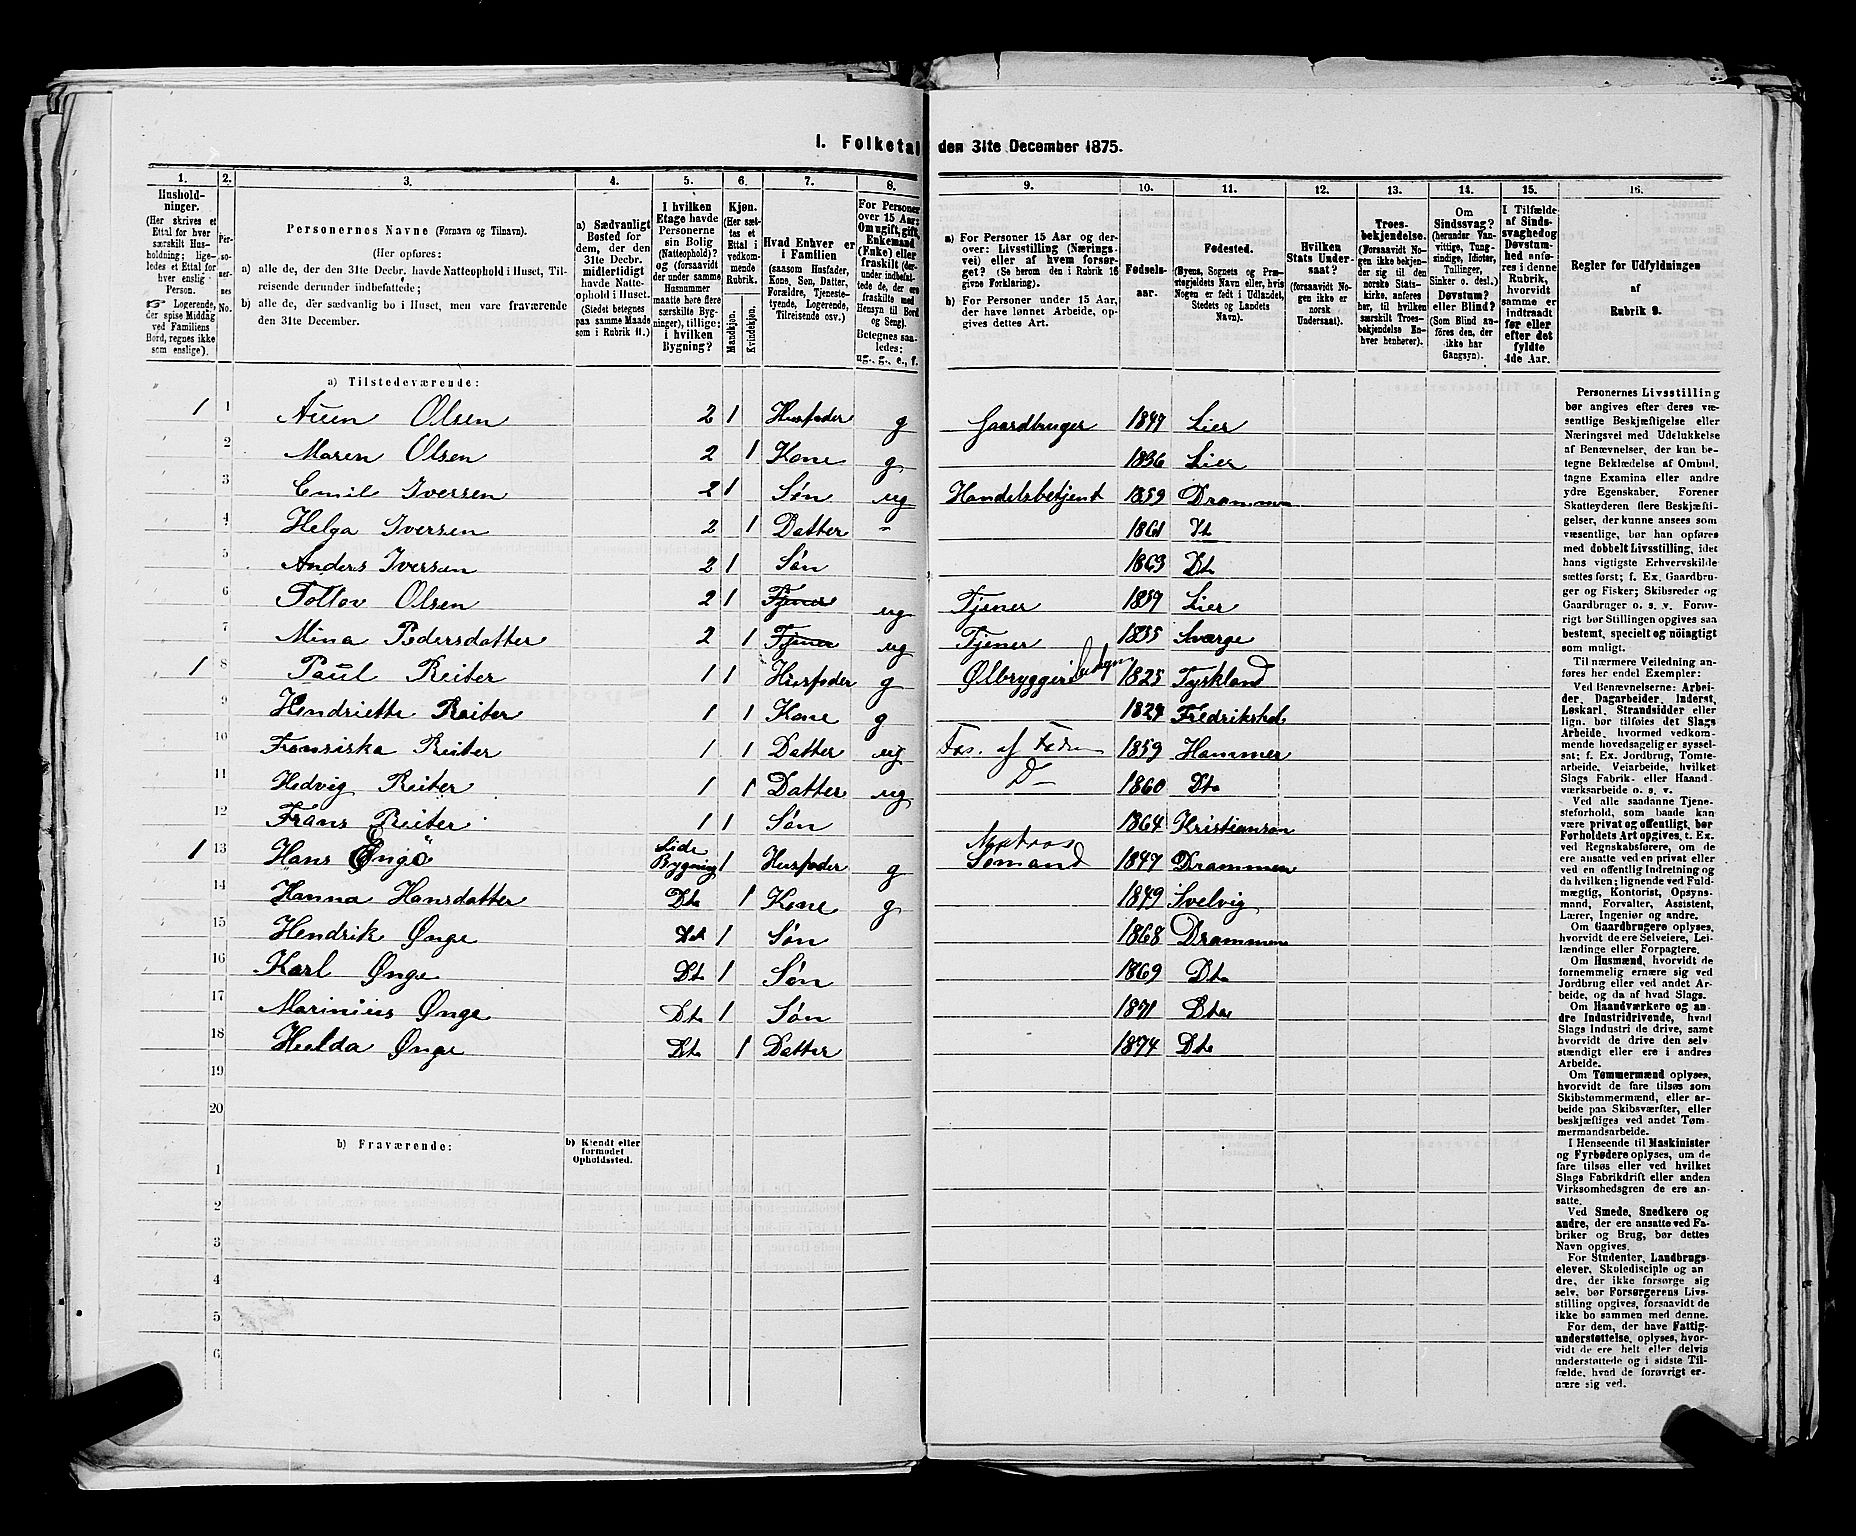 I. Folketal den 31te December 1875.
1. 2. 3. 4. 5. 6. 7. 8. 9. 10. 11. 12. 13. 14. 15. 16.
Hushold-
ninger.
(Her skrives et
Ettal for hver
særskilt Hus-
holdning; lige-
ledes et Ettal for
hver enslig
Person.
☞ Logerende,
der spise Middag
ved Familiens
Bord, regnes ikke
som enslige).
Per-
so-
ner-
nes
No.
Personernes Navne (Fornavn og Tilnavn).
(Her opføres:
a) alle de, der den 31te Decbr. havde Natteophold i Huset, Til-
reisende derunder indbefattede;
b) alle de, der sædvanlig bo i Huset, men vare fraværende
den 31te December.
a) Sædvanligt
Bosted for
dem, der den
31te Decbr.
midlertidigt
havde Natte-
ophold i Huset.
(Stedet betegnes
paa samme Maade
som i Rubrik 11.)
I hvilken
Etage havde
Personerne
sin Bolig
(Natteophold)?
og (forsaavidt
der under samme
Husnummer
maatte høre flere
særskilte Byg-
ninger), tillige:
i hvilken
Bygning?
Kjøn.
(Her sæt-
tes et
Ettal i
vedkom-
mende
Rubrik.
Mandkjøn.
Kvindekjøn.
Hvad Enhver er
i Familien
(saasom Husfader,
Kone, Søn, Datter,
Forældre, Tjeneste-
tyende, Logerende,
Tilreisende osv.)
For Personer
over 15 Aar:
Om ugift, gift,
Enkemand
(Enke) eller
fraskilt (der-
under indbefat-
tede de, der ere
fraskilte med
Hensyn til Bord
og Seng).
Betegnes saa-
ledes:
ug., g., e., f.
a) For Personer 15 Aar og der-
over: Livsstilling (Nærings-
vei) eller af hvem forsør-
get? (Se herom den i Rubrik 16
givne Forklaring).
b) For Personer under 15 Aar,
der have lønnet Arbeide, op-
gives dettes Art.
Fødsels-
aar.
Fødested.
(Byens, Sognets og Præ-
stegjeldets Navn eller, hvis
Nogen er født i Udlandet,
Stedets og Landets
Navn).
Hvilken
Stats Under-
saat?
(forsaavidt No-
gen ikke er
norsk
Undersaat).
Troes-
bekjendelse.
(Forsaavidt No-
gen ikke bekjen-
der sig til den
norske Stats-
kirke, anføres
her, til hvilken
særskilt Troes-
bekjendelse En-
hver henhører).
Om
Sindssvag?
(herunder Van-
vittige, Tung-
sindige, Idioter,
Tullinger,
Sinker o. desl.)
Døvstum?
eller Blind?
(Som Blind an-
føres den, der
ikke har
Gangsyn).
I Tilfælde
af Sinds-
svaghed og
Døvstum-
hed anfø-
res i denne
Rubrik,
hvorvidt
samme er
indtraadt
før eller
efter det
fyldte
4de Aar.
Regler for Udfyldningen
af
Rubrik 9.
a) Tilstedeværende:
1 1 Auen Olsen 2 1 Husfader g Gaardbruger 1847 Lier
2 Maren Olsen 2 1 Kone g 1836 Lier
3 Emil Iversen 2 1 Søn ug Handelsbetjent 1859 Drammen
4 Helga Iversen 2 1 Datter - 1861 Dt
5 Anders Iversen 2 1 Søn 1863 Dt
6 Tollov Olsen 2 1 Tjener ug Tjener 1859 Lier
7 Mina Pedersdatter 2 1 Tjener ug Tjener 1855 Sverge
1 8 Paul Reiter 1 1 Husfader g Ølbryggeri 1825 Tyskland
9 Hendriette Reiter 1 1 Kone g 1829 Fredrikshal
10 Fransiska Reiter 1 1 Datter ug Fors. af Faderen 1859 Hammer
11 Hedvig Reiter 1 1 Datter ug D- 1860 Dto
12 Frans Reiter 1 1 Søn 1864 Kristiansan
1 13 Hans Enge Side Bygning 1 Husfader g Sømand 1847 Drammen
14 Hanna Hansdatter Dto 1 Kone g 1849 Svelvig
15 Hendrik Ønge Dto 1 Søn 1868 Drammen
16 Karl Ønge Dto 1 Søn 1869 Dto
17 Marinius Ønge Dto 1 Søn 1871 Dto
18 Helda Ønge Dto 1 Datter 1874 Dto
19
20
b) Fraværende:
b) Kjendt eller
formodet
Opholdssted.
1
2
3
4
5
6
Personernes Livsstilling
bør angives efter deres væ-
sentlige Beskjæftigelse eller
Næringsvei med Udelukkelse
af Benævnelser, der kun be-
tegne Beklædelse af Ombud,
tagne Examina eller andre
ydre Egenskaber. Forener
Skatteyderen flere Beskjæfti-
gelser, der kunne ansees som
væsentlige, bør han opføres
med dobbelt Livsstilling, idet
hans vigtigste Erhvervskilde
sættes først; f. Ex. Gaardbru-
ger og Fisker; Skibsreder og
Gaardbruger o. s. v. Forøv-
rigt bør Stillingen opgives saa
bestemt, specielt og nöiagtigt
som muligt.
Til nærmere Veiledning an-
føres her endel Exempler:
Ved Benævnelserne: Arbei-
der, Dagarbeider, Inderst,
Løskarl, Strandsidder eller
lign. bør tilføies det Slags
Arbeide, hvormed vedkom-
mende hovedsagelig er syssel-
sat; f. Ex. Jordbrug, Tomte-
arbeide, Veiarbeide, hvilket
Slags Fabrik- eller Haand-
værksarbeide o. s. v.
Ved alle saadanne Tjene-
steforhold, som baade kan
være privat og offentligt, bør
Forholdets Art opgives, t. Ex.
ved Regnskabsførere, om de
ere ansatte ved en privat eller
ved en offentlig Indretning og
da hvilken; lignende ved Fuld-
mægtig, Kontorist, Opsyns-
mand, Forvalter, Assistent,
Lærer, Ingeniør og andre.
Om Gaardbrugere oplyses,
hvorvidt de ere Selveiere, Lei-
lændinge eller Forpagtere.
Om Husmænd, hvorvidt de
fornemmelig ernære sig ved
Jordbrug eller ved andet Ar-
beide, og da af hvad Slags.
Om Haandværkere og an-
dre Industridrivende, hvad
Slags Industri de drive, samt
hvorvidt de drive den selv-
stændigt eller ere i andres
Arbeide.
Om Tømmermænd oplyses,
hvorvidt de fare tilsøs som
Skibstømmermænd, eller ar-
beide paa Skibsværfter, eller
beskjæftiges ved andet Tøm-
mermandsarbeide.
I Henseende til Maskinister
og Fyrbødere oplyses, om de
fare tilsøs eller ved hvilket
Slags Fabrikdrift eller anden
Virksomhedsgren de ere an-
satte.
Ved Smede, Snedkere og
andre, der ere ansatte ved Fa-
briker og Brug, bør dettes
Navn opgives.
For Studenter, Landbrugs-
elever, Skoledisciple og an-
dre, der ikke forsørge sig
selv, bør Forsørgerens Livs-
stilling opgives, forsaavidt de
ikke bo sammen med denne.
For dem, der have Fattig-
understøttelse, oplyses, hvor-
vidt de ere helt eller delvis
understøttede og i sidste Til-
fælde, hvad de forøvrigt er-
nære sig ved.